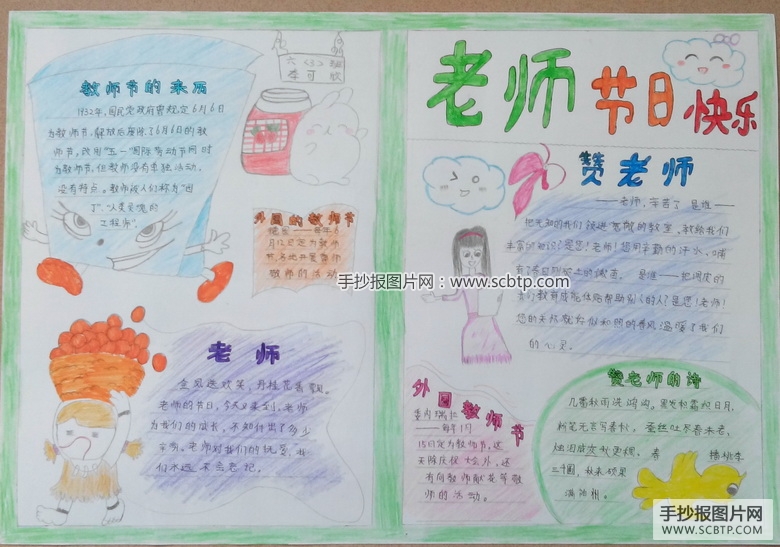 教师节的来历
1932年,国民党政府曾规定6月6日
为教师节,解放后废除了6月6日的教
师节,改用“五一”国际劳动节同时
为教师节,但教师没有单独活动,
没有特点。教师被人们称为“园
丁”“人类灵魂的
工程师”。
六〈3〉班
李可欣
外国的教师节
每年
月12日定为教师
节,各地开展尊师
敬师们活动
老师
金风送欢笑,丹桂花香飘。
老师的节日,今天又来到。老师
为我们的成长,不知付出了多少
辛劳。老师对我们的优爱,我
们永远不会忘记。
老师节日快乐
赞老师
——老师,辛苦了 是谁——
把无知的我们领进宽敞的教室,教给我们
丰富的知识?是您!老师!您用辛勤的汗水,哺
育了春日刚破土的嫩苗。是谁——把调皮的
我们教育成能体贴帮助别人的人?是您!老师!
您的关怀就好似和煦的春风,温暖了我们
的心灵。
外国教师节
委内瑞拉
——每年1月
15日定为教师节,这
天除庆祝大会外,还
有向教师献花等敬
师的活动。
赞老师的诗
几番秋雨洗鸿沟。黑发积霜织日月,
粉笔无言写春秋。蚕丝吐尽春未老,
烛泪成灰秋更稠。春播桃李
三千圃,秋来硕果
满神州。
手抄报图片网:www.scbtp.com
手抄报图片网
SCBTP.COM